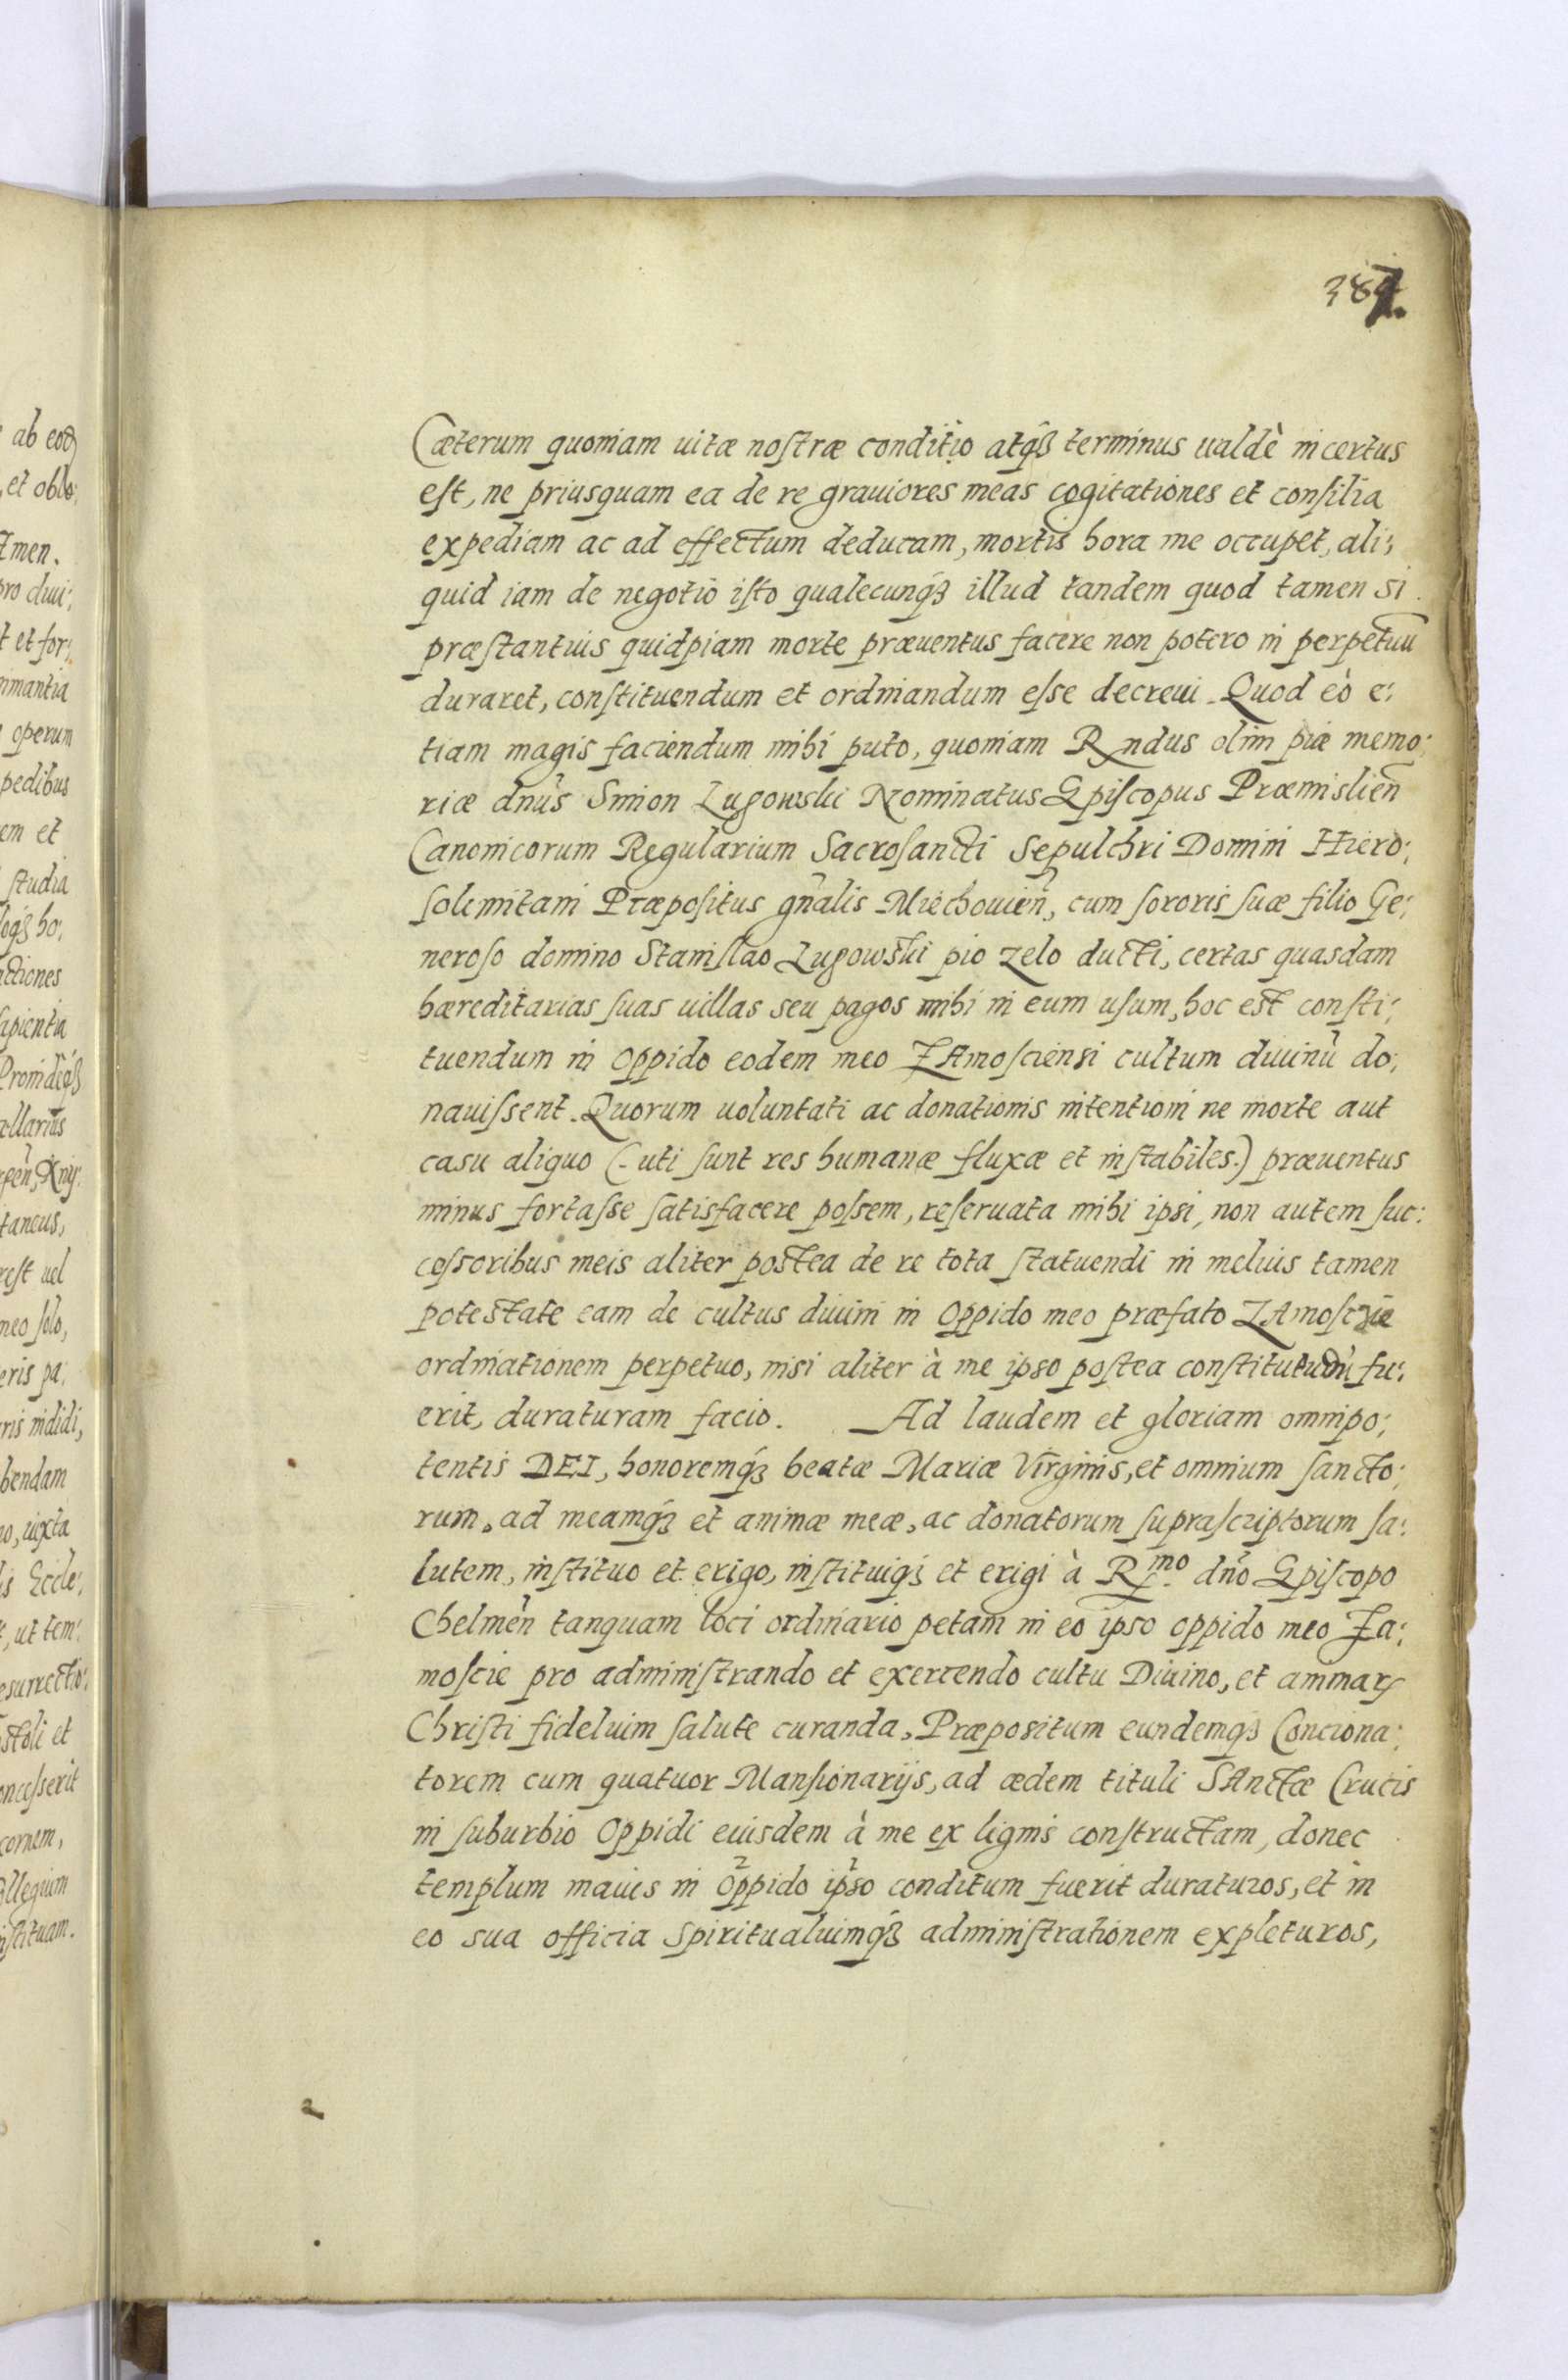 387.
Cæterum quoniam uitæ noſtræ conditio atq́ꝫ terminus ualdè incertus
eſt, ne priusquam ea de re grauiores meas cogitationes et conſilia
expediam ac ad effectum deducam, mortis hora me occupet, ali:
quid iam de negotio iſto qualecunq́ꝫ illud tandem quod tamen si
præſtantius quidpiam morte præuentus facere non potero in perpetuū
duraret, conſtituendum et ordinandum eſse decreui. Quod eò e:
tiam magis faciendum mihi puto, quoniam Rndus olim piæ memo:
riæ dn̄us Simon Lugowski Nominatus Epiſcopus Præmislien̄
Canonicorum Regularium Sacroſancti Sepulchri Domini Hiero:
ſolemitani Præpoſitus gn̄alis Miechouien̄, cum ſororis ſuæ filio Ge:
neroſo domino Staniſlao Lugowski pio zelo ducti, certas quasdam
hæreditarias ſuas uillas seu pagos mihi in eum uſum, hoc est conſti:
tuendum in oppido eodem meo ZAmoſciensi cultum diuinū do:
nauiſsent. Quorum uoluntati ac donationis intentioni ne morte aut
casu aliquo (uti ſunt res humanæ fluxæ et inſtabiles.) præuentus
minus fortaſse ſatisfacere poſsem, reſeruata mihi ipsi, non autem ſuc:
ceſsoribus meis aliter postea de re tota ſtatuendi in melius tamen
potestate eam de cultus diuini in oppido meo præfato ZAmoſcie
ordinationem perpetuo, nisi aliter à me ipso poſtea conſtitutum fu:
erit, duraturam facio. Ad laudem et gloriam omnipo:
tentis DEI, honoremq́ꝫ beatæ Mariæ Virginis, et omnium ſancto:
rum, ad meamq́ꝫ et animæ meæ, ac donatorum ſupraſcriptorum ſa:
lutem, inſtituo et erigo, inſtituiq́ꝫ et erigi à Rmo dn̄o Epiſcopo
Chelmen̄ tanquam loci ordinario petam in eo ipso oppido meo Za:
moſcie pro adminiſtrando et exercendo cultu Diuino, et animaꝝ
Chriſti fidelium ſalute curanda, Præpositum eundemqꝫ Conciona:
torem cum quatuor Manſionarijs, ad ædem tituli SAnctæ Crucis
in ſuburbio Oppidi eiusdem à me ex lignis conſtructam, donec
templum maius in oppido ipso conditum fuerit duraturos, et in
eo sua officia Spiritualiumq́ꝫ adminiſtrationem expleturos,